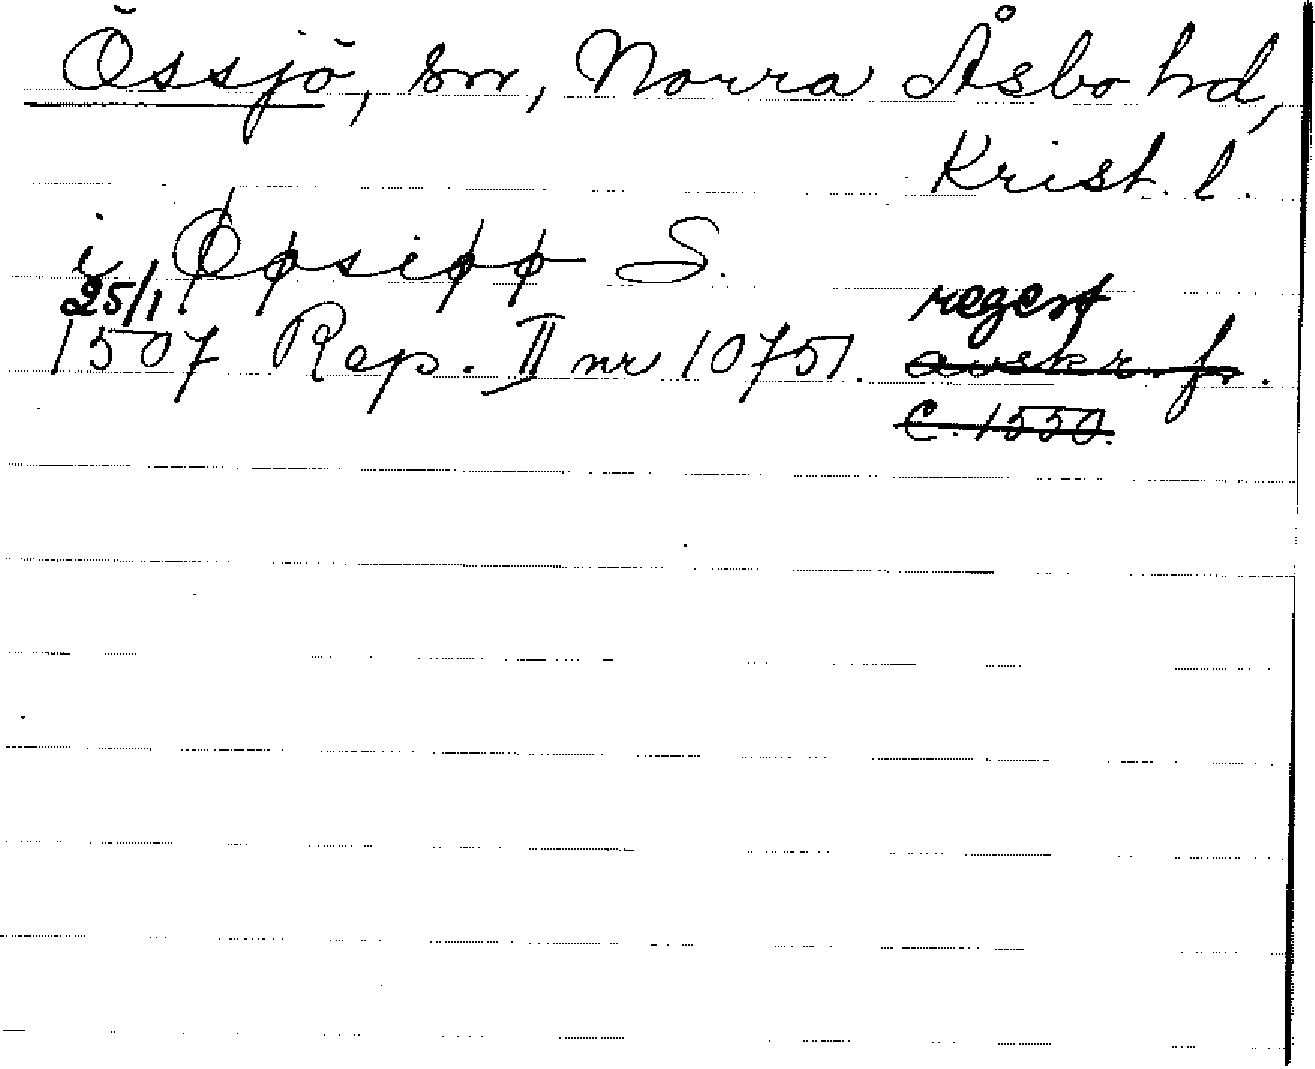 Össjö, sn, Norra Åsbo hd,
Krist. l.
i Øøsiøø S.
25/1 1507 Rep. II nr 10751. regest
avskr. fr.
c. 1550.